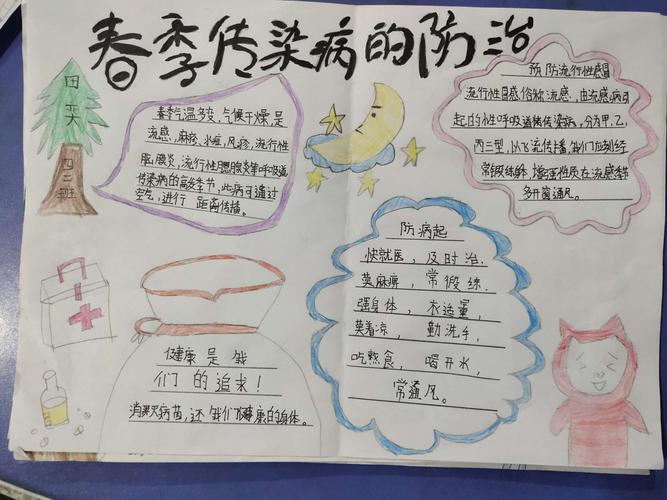 春季传染病的防治
田奕
四三班
春季气温多变，气候干燥，是
流感，麻疹，水痘，风疹，流行性
脑膜炎，流行性腮腺炎等呼吸道
传染病的高发季节，此病可通过
空气，进行 距离传播。
预防流行性感冒
流行性感俗称流感，由流感病引
起的性呼吸道传染病，分为甲，乙，
丙三型，以飞流传播，我们应经
常锻练，增强性质在流感季节
多开窗通风。
防病起
快就医，及时治，
莫麻痹，常假练，
强身体，衣适量，
莫着凉，勤洗手，
吃熟食，喝开水，
常通风。
健康是我
们的追求！
消灭病菌，还我们健康的身体。